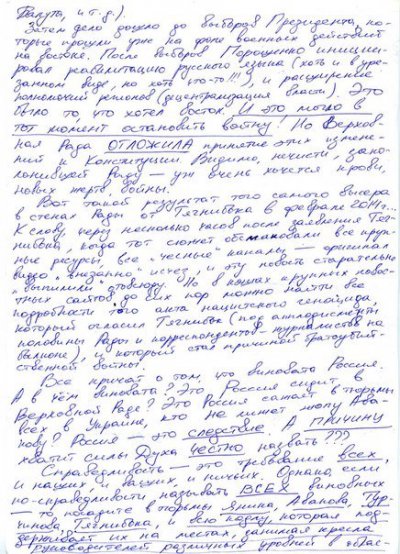 Балута, и т.д.).
Затем дело дошло до выборов Президента, ко-
торые прошли уже на фоне военных действий
на востоке. После выборов Порошенко иниции-
ировал реабилитацию русского языка (хоть и в уре-
занном виде, но хоть что-то!!!) и расширение
полномочий регионов (децентрализация власти). Это
было то, что хотел восток. И это могло в
тот момент остановить войну! Но Верхов-
ная Рада ОТЛОЖИЛА принятие этих измене-
ний к Конституции. Видимо, нечисти, запо-
лонившей Раду — уж очень хочется крови,
новых жертв, войны.
Вот такой результат того самого высера
в стенах Рады от Тягнибока в феврале 2014г...
К слову, через несколько часов после заявления Тяг-
нибока, когда тот сюжет обсмаковали все круп-
ные ресурсы, все "честные" каналы — оригинал
видео "внезапно" исчез, и эту новость старательно
"выпилили" отовсюду. Но в кэшах крупных новос-
тных сайтов до сих пор можно найти все
подробности того акта нацистского геноцида,
который огласил Тягнибок (под аплодисменты
половины Рады и корреспондентов и журналистов на
балконе), и который стал причиной братоубий-
ственной войны.
Все кричат о том, что виновата Россия.
А в чём виновата? Это Россия сидит в
Верховной Раде? Это Россия сажает в тюрьмы
всех в Украине, кто не лижет жопу Ава-
кову? Россия — это следствие. А ПРИЧИНУ
хватит силы Духа честно назвать???
Справедливость — это требование всех,
и наших, и ваших, и ничьих. Однако, если
по-справедливости называть ВСЕХ виновных
— то посадите в тюрьмы Яника, Авакова, Тур-
чинова, Тягнибока, и всю кодлу, которая под-
держивает их на местах, занимая кресла
руководителей различных уровней в облас-